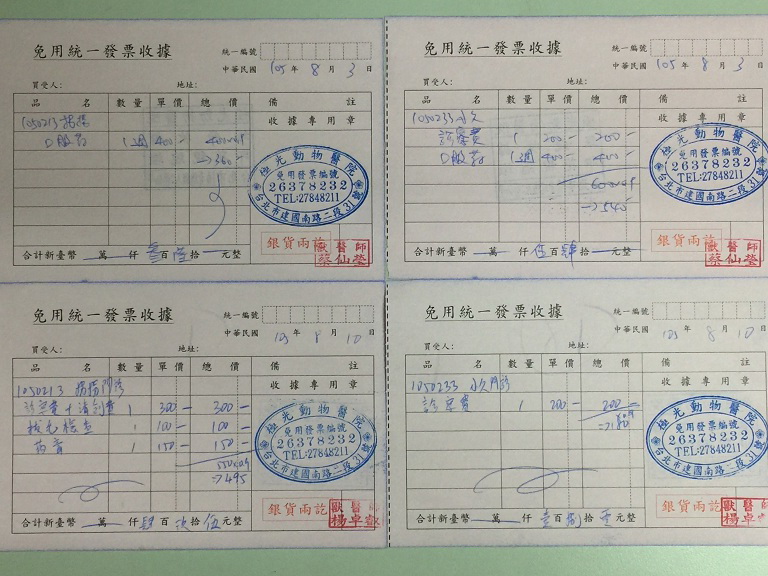 免用統一發票收據
統一編號
中華民國 105 年 8 月 3 日
買受人： 地址：
品 名 數量 單價 總 價 備 註
1050213
收據專用章
口服藥 1週 400- 400×0.9
→360-
極光動物醫院
免用發票編號
26378232
TEL:27848211
台北市建國南路二段31號
銀貨兩訖
獸醫師
蔡仙瑩
合計新臺幣 萬 仟 參 百 陸 拾 元整
免用統一發票收據
統一編號
中華民國 105 年 8 月 3 日
買受人： 地址：
品 名 數量 單價 總 價 備 註
1050233 永久
收據專用章
診察費 1 200- 200-
口服藥 1週 400- 400-
600×0.9
→540-
極光動物醫院
免用發票編號
26378232
TEL:27848211
台北市建國南路二段31號
銀貨兩訖
獸醫師
蔡仙瑩
合計新臺幣 萬 仟 伍 百 肆 拾 元整
免用統一發票收據
統一編號
中華民國 105 年 8 月 10 日
買受人： 地址：
品 名 數量 單價 總 價 備 註
1050213
收據專用章
1 300- 300-
1 100- 100-
1 150- 150-
550×0.9
→495
極光動物醫院
免用發票編號
26378232
TEL:27848211
台北市建國南路二段31號
銀貨兩訖
獸醫師
楊卓
合計新臺幣 萬 仟 肆 百 玖 拾 伍 元整
免用統一發票收據
統一編號
中華民國 105 年 8 月 10 日
買受人： 地址：
品 名 數量 單價 總 價 備 註
1050233 永久
收據專用章
診察費 1 200- 200-
→180
極光動物醫院
免用發票編號
26378232
TEL:27848211
台北市建國南路二段31號
銀貨兩訖
獸醫師
楊卓
合計新臺幣 萬 仟 壹 百 捌 拾 零 元整